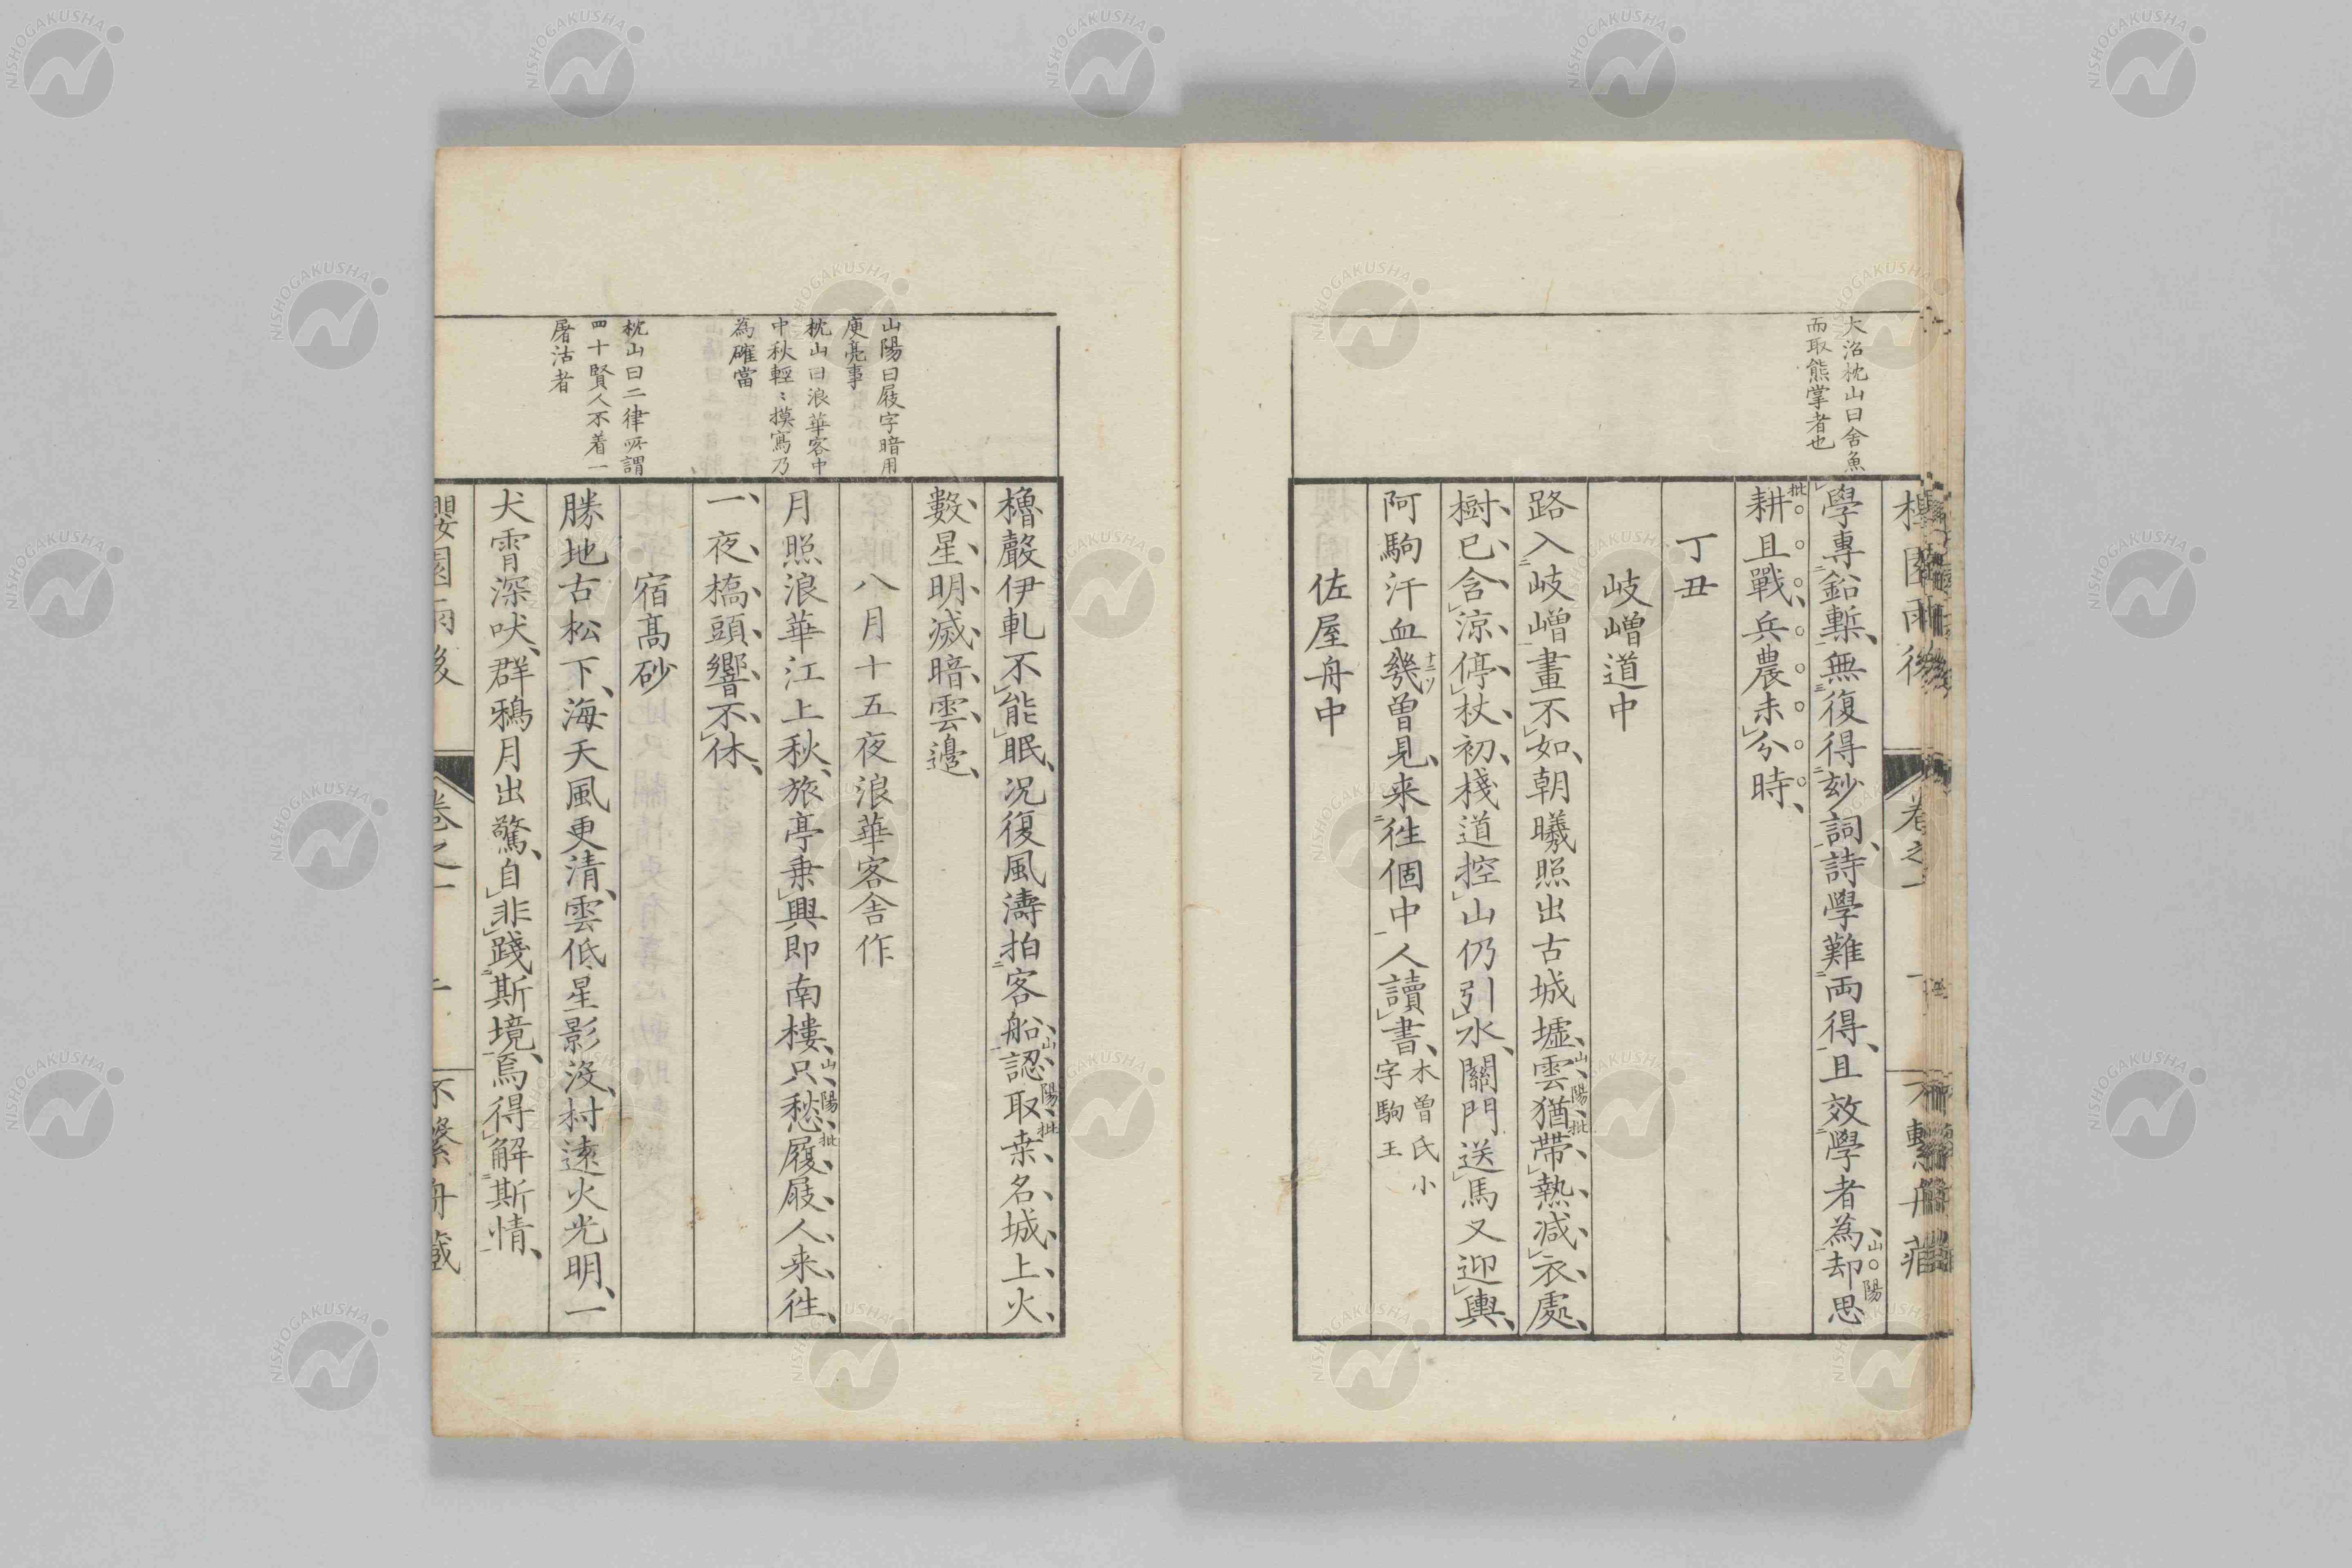 大沼枕山曰舍魚
而取熊掌者也
學專鉛槧無復得玅詞詩學難両得且效學者為却思
山陽
批
耕且戰兵農未分時
丁丑
岐嶒道中
路入岐嶒畫不如朝曦照出古城墟雲猶帶熱減衣處
山陽批
樹已含涼停杖初棧道控山仍引水關門送馬又迎輿
阿駒汗血幾曽見来徃個中人讀書
木曽氏小
字駒王
佐屋舟中
卷之一
山陽曰屐字暗用
庾亮事
枕山曰浪華客中
中秋輕〻摸寫乃
為確當
枕山曰二律所謂
四十賢人不着一
屠沽者
櫓聲伊軋不能眠況復風濤拍客船認取桒名城上火
山陽批
數星明滅暗雲邉
八月十五夜浪華客舎作
月照浪華江上秋旅亭乗興即南樓只愁履屐人来徃
山陽批
一夜橋頭響不休
宿髙砂
勝地古松下海天風更清雲低星影沒村遠火光明一
犬霄深吠群鴉月出驚自非踐斯境焉得解斯情
櫻園雨後
卷之一
不繫舟藏
NISHOGAKUSHA